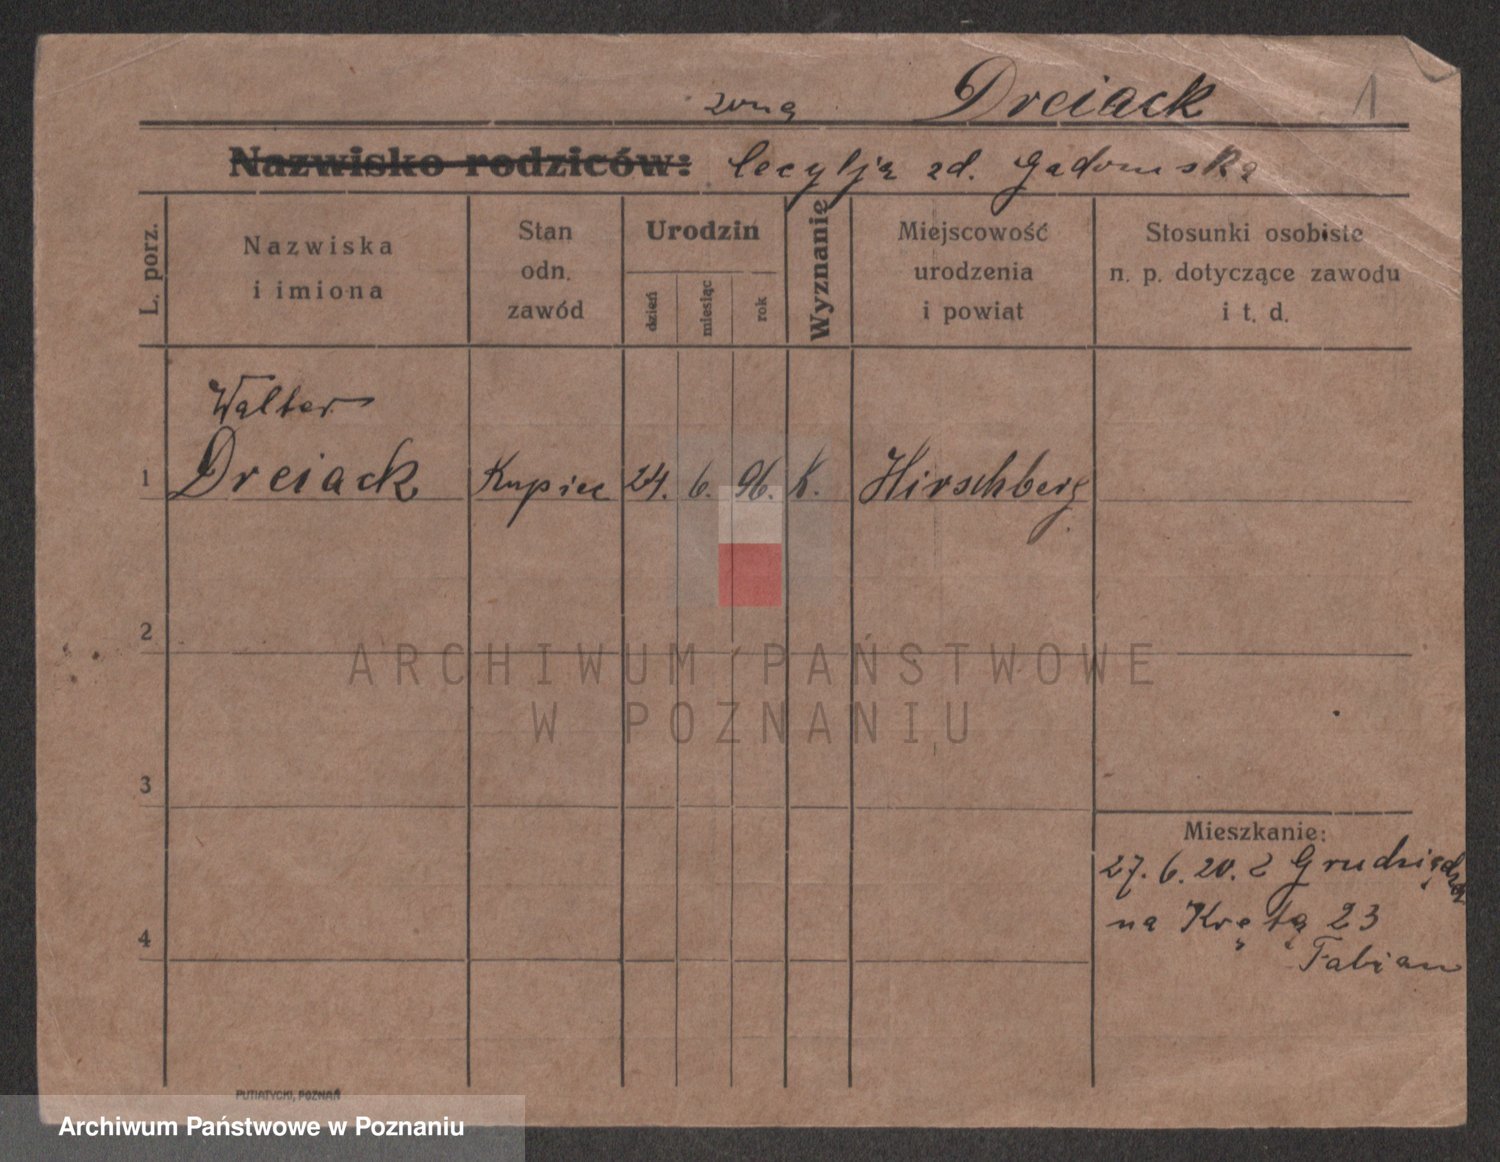 żona Dreiack 1
Nazwisko rodziców: Cecylja zd. Gadomska
L. porz.
Nazwiska
i imiona
Stan
odn.
zawód
Urodzin
dzień
miesiąc
rok
Wyznanie
Miejscowość
urodzenia
i powiat
Stosunki osobiste
n. p. dotyczące zawodu
i t. d.
Walter
1 Dreiack Kupiec 24. 6. 96. k. Hirschberg
2
ARCHIWUM PAŃSTWOWE
W POZNANIU
3
Mieszkanie:
27. 6. 20. z Grudziądza
na Krętą 23
4
Fabian
PUTIATYCKI, POZNAŃ
Archiwum Państwowe w Poznaniu